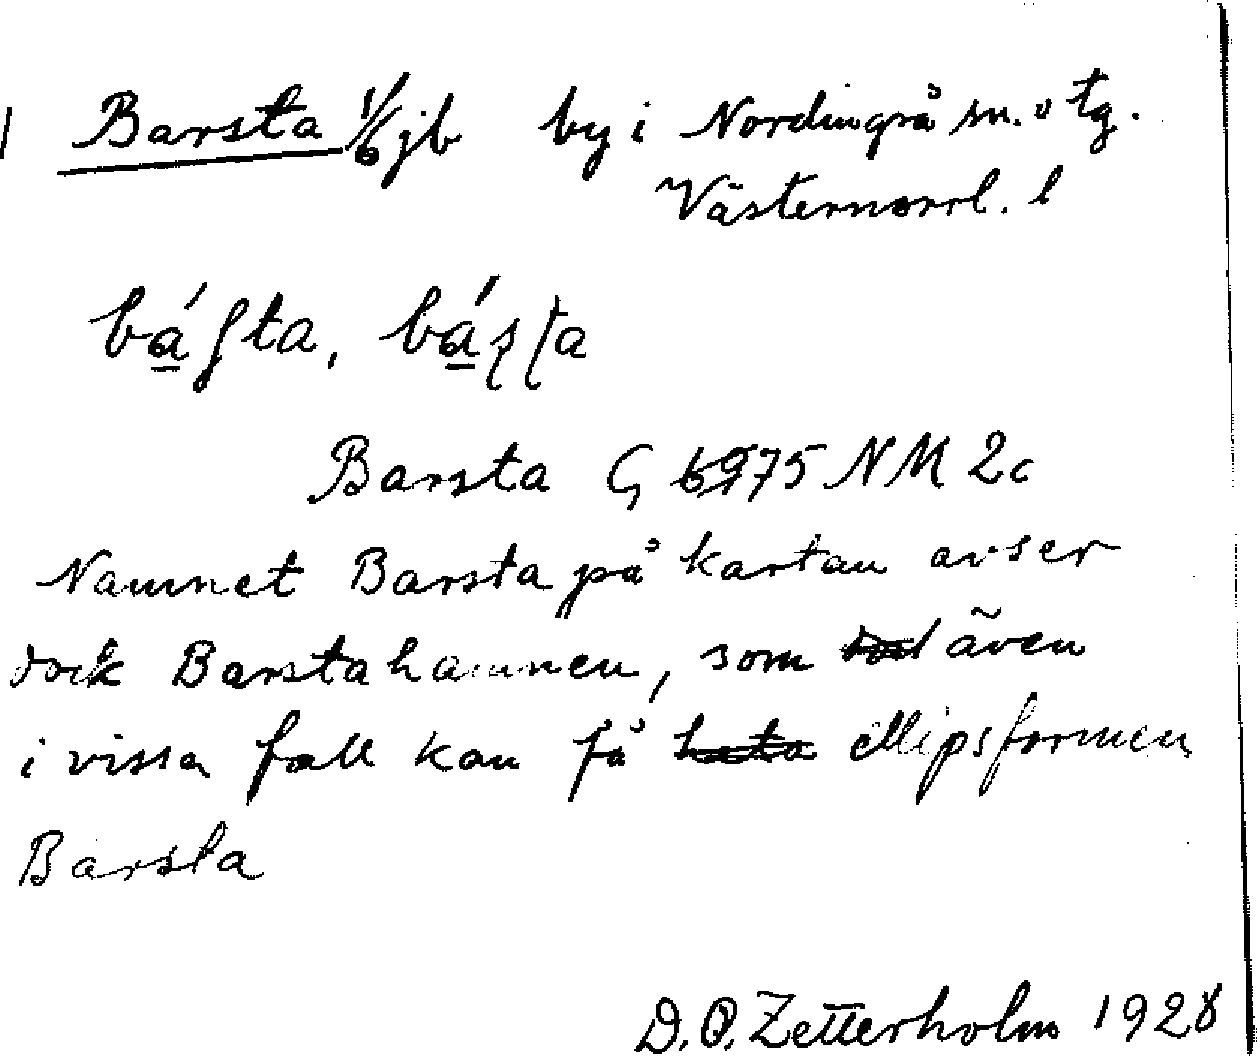 Barsta 1/6 jb by i Nordingrå sn. o tg.
Västernorrl. l
Barsta G 6975 NM 2c
Namnet Barsta på kartan avser
dock Barstahamnen, som även
i vissa fall kan få ellipsformen
Barsta
D. O. Zetterholm 1928